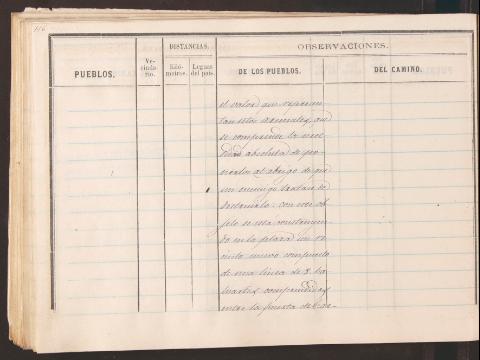 116
PUEBLOS.
Ve-
cinda-
rio.
DISTANCIAS.
Kiló-
metros.
Leguas
del país.
OBSERVACIONES.
DE LOS PUEBLOS.
DEL CAMINO.
el valor que represen
tan estos animales, que
se comprende la nece
sidad absoluta de po
nerlos al abrigo de
un enemigo
con este ob
jeto se esta construyen
do en la plaza un re
cinto nuevo compuesto
de una linea de 3 ba
luartes comprendidos
entre la puerta de